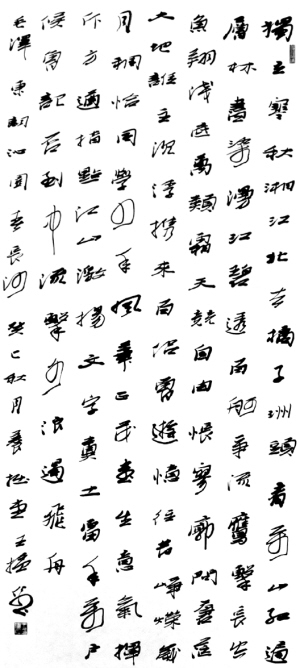 獨立寒秋湘江北去橘子洲頭看萬山紅遍
層林盡染漫江碧透百舸爭流鷹擊長空
魚翔淺底萬類霜天競自由悵寥廓問蒼茫
大地誰主沉浮攜來百侣曾遊憶往昔崢嶸歲
月稠恰同學少年風華正茂書生意氣揮
斥方遒指點江山激揚文字糞土當年萬戶
侯曾記否到中流擊水浪遏飛舟
毛澤東詞沁園春長沙癸巳秋月養拙堂王